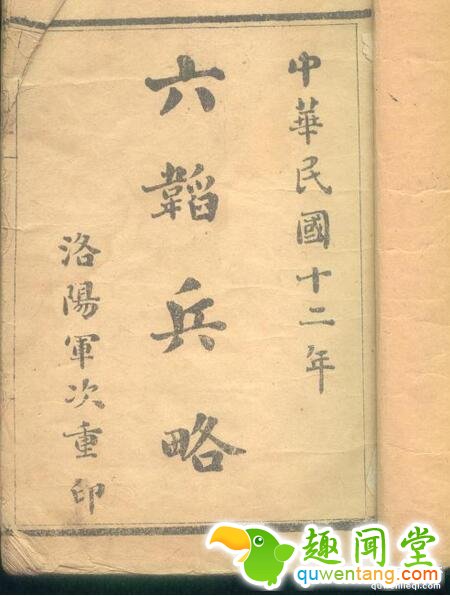 中華民國十二年
六韜兵略
洛陽軍次重印
趣闻堂
quwentang.com